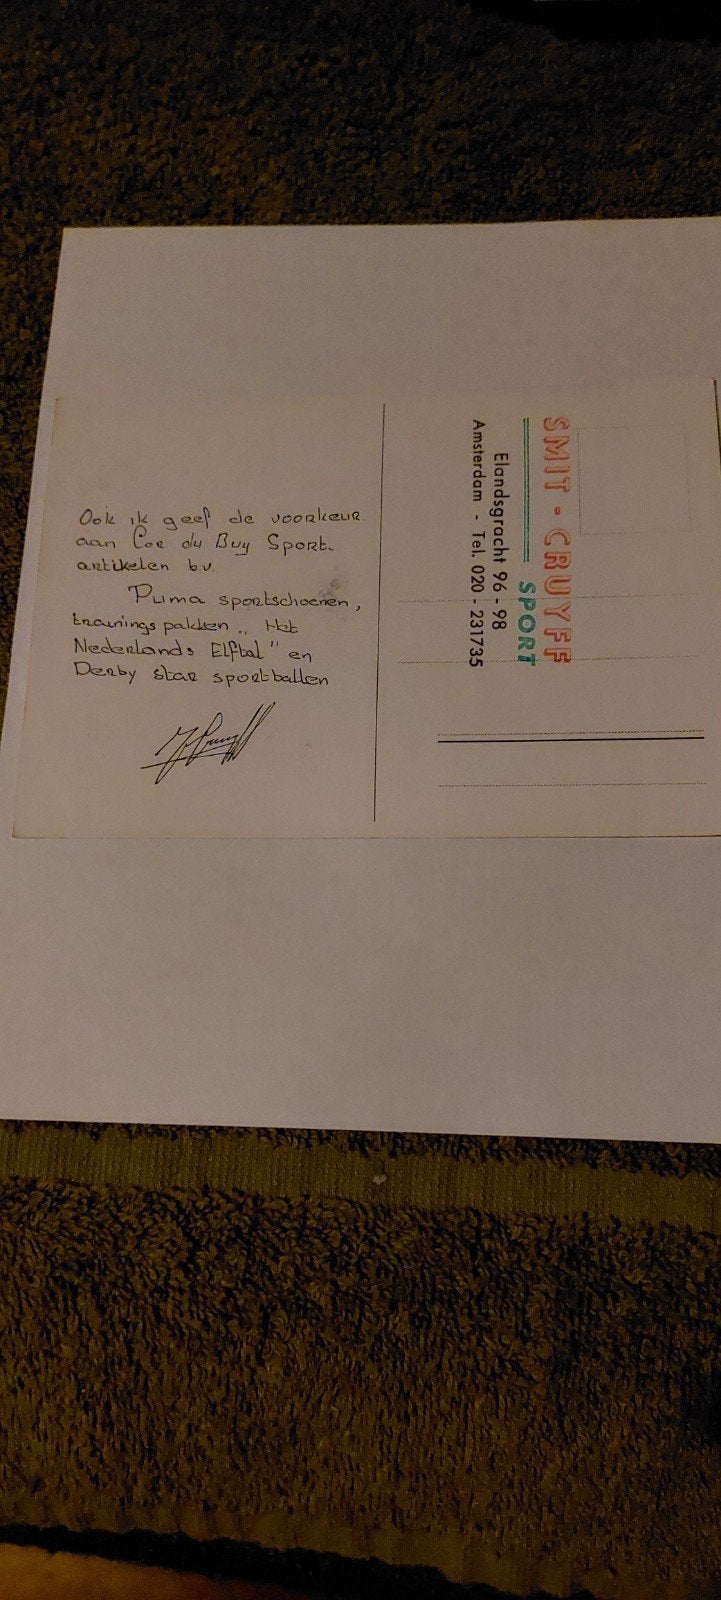 Ook ik geef de voorkeur
aan Cor du Buy Sport-
artikelen b.v.
Puma sportschoenen,
trainings pakken „ Het
Nederlands Elftal" en
Derby star sportballen
SMIT - CRUYFF
SPORT
Elandsgracht 96 - 98
Amsterdam - Tel. 020 - 231735